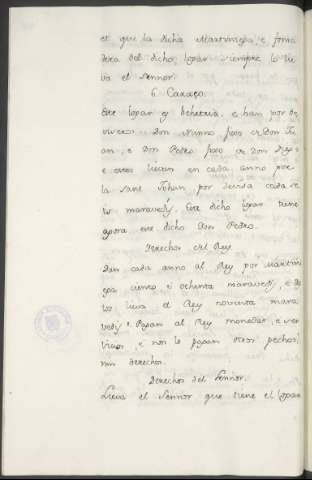 et que la dicha Martiniega, e fonsa
dera del dicho logar siempre lo lie
va el Sennor.
6 Carazo.
Este logar es Behetria, e han por de
viseros Don Nunno fijo de Don Ju
an, e Don Pedro fijo de Don Diego
e estos lievan en cada anno por
la Sant Johan por devisa cada se
is maravedis. Este dicho logar tiene
agora este dicho Don Pedro.
Derechos del Rey.
Dan cada anno al Rey por Martini
ega ciento e ochenta maravedis, e de
los lieva el Rey noventa mara
vedis. Pagan al Rey monedas, e ser
vicios, e non le pagan otros pechos,
nin derechos.
Derechos del Sennor.
Lieva el Sennor que tiene el logar